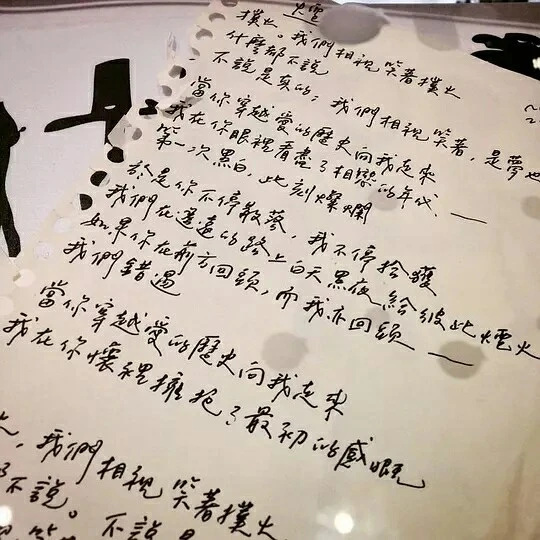 煙雲
撲火。我們相視笑著撲火
什麼都不說
不說是真的；我們相視笑著，是夢也
當你穿越愛的歷史向我走來
我在你眼裡看盡了相戀的年代、——
第一次黑白，此刻燦爛
於是你不停散落，我不停捨獲
我們在遙遠的路上白天黑夜給彼此煙火
如果你在前方回頭，而我亦回頭——
我們錯過
當你穿越愛的歷史向我走來
我在你懷裡擁抱了最初的感嘅
火，我們相視笑著撲火
都不說。
不說是